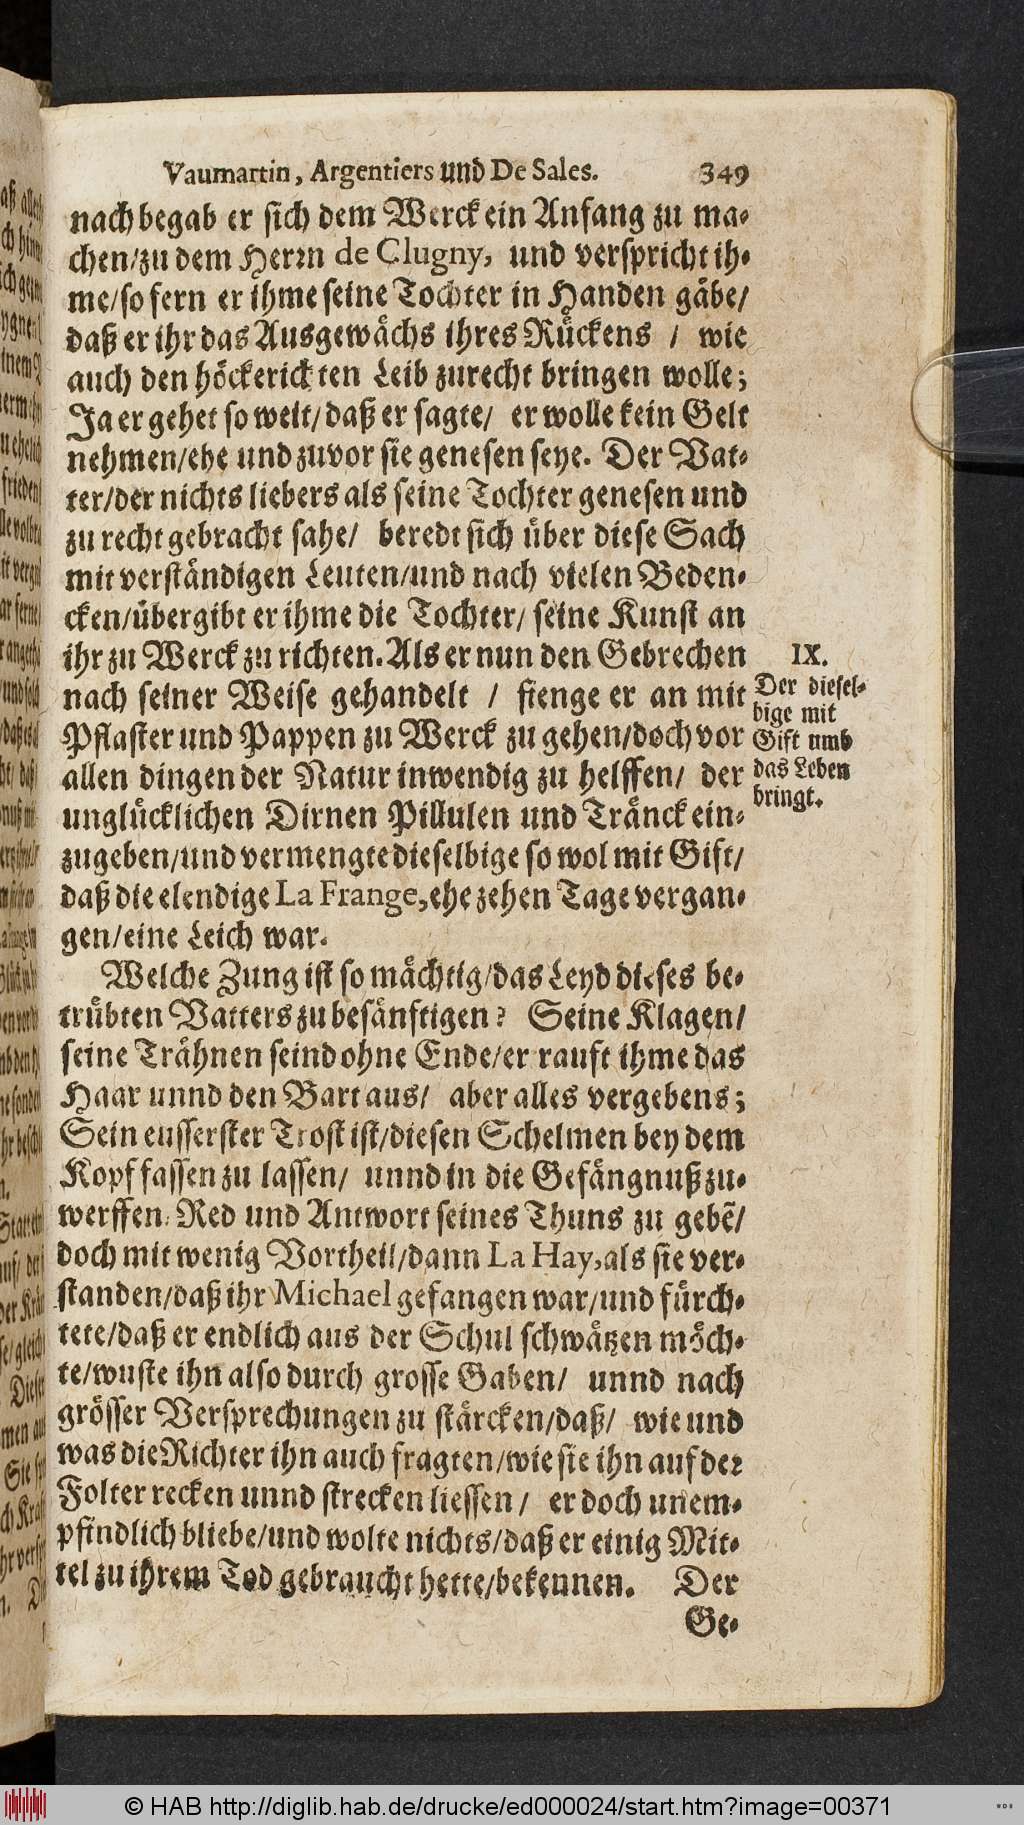 Vaumartin, Argentiers und De Sales. 349
nach begab er sich dem Werck ein Anfang zu ma-
chen/zu dem Herrn de Clugny, und verspricht ih-
me/so fern er ihme seine Tochter in Handen gäbe/
daß er ihr das Ausgewächs ihres Rückens / wie
auch den höckerickten Leib zurecht bringen wolle;
Ja er gehet so weit/daß er sagte/ er wolle kein Gelt
nehmen/ehe und zuvor sie genesen seye. Der Vat-
ter/der nichts liebers als seine Tochter genesen und
zu recht gebracht sahe/ beredt sich über diese Sach
mit verständigen Leuten/und nach vielen Beden-
cken/übergibt er ihme die Tochter/ seine Kunst an
ihr zu Werck zu richten. Als er nun den Gebrechen
nach seiner Weise gehandelt / fienge er an mit
Pflaster und Pappen zu Werck zu gehen/doch vor
allen dingen der Natur inwendig zu helffen/ der
unglücklichen Dirnen Pillulen und Tränck ein-
zugeben/und vermengte dieselbige so wol mit Gift/
daß die elendige La Frange, ehe zehen Tage vergan-
gen/eine Leich war.
IX.
Der diesel-
bige mit
Gift umb
das Leben
bringt.
Welche Zung ist so mächtig/das Leyd dieses be-
trübten Vatters zu besänftigen? Seine Klagen/
seine Trähnen seind ohne Ende/er rauft ihme das
Haar unnd den Bart aus/ aber alles vergebens;
Sein eusserster Trost ist/diesen Schelmen bey dem
Kopf fassen zu lassen/ unnd in die Gefängnuß zu-
werffen: Red und Antwort seines Thuns zu gebẽ/
doch mit wenig Vortheil/dann La Hay, als sie ver-
standen/daß ihr Michael gefangen war/und fürch-
tete/daß er endlich aus der Schul schwätzen möch-
te/wuste ihn also durch grosse Gaben/ unnd nach
grösser Versprechungen zu stärcken/daß/ wie und
was die Richter ihn auch fragten/wie sie ihn auf der
Folter recken unnd strecken liessen / er doch unem-
pfindlich bliebe/und wolte nichts/daß er einig Mit-
tel zu ihrem Tod gebraucht hette/bekennen. Der
Ge-
© HAB http://diglib.hab.de/drucke/ed000024/start.htm?image=00371